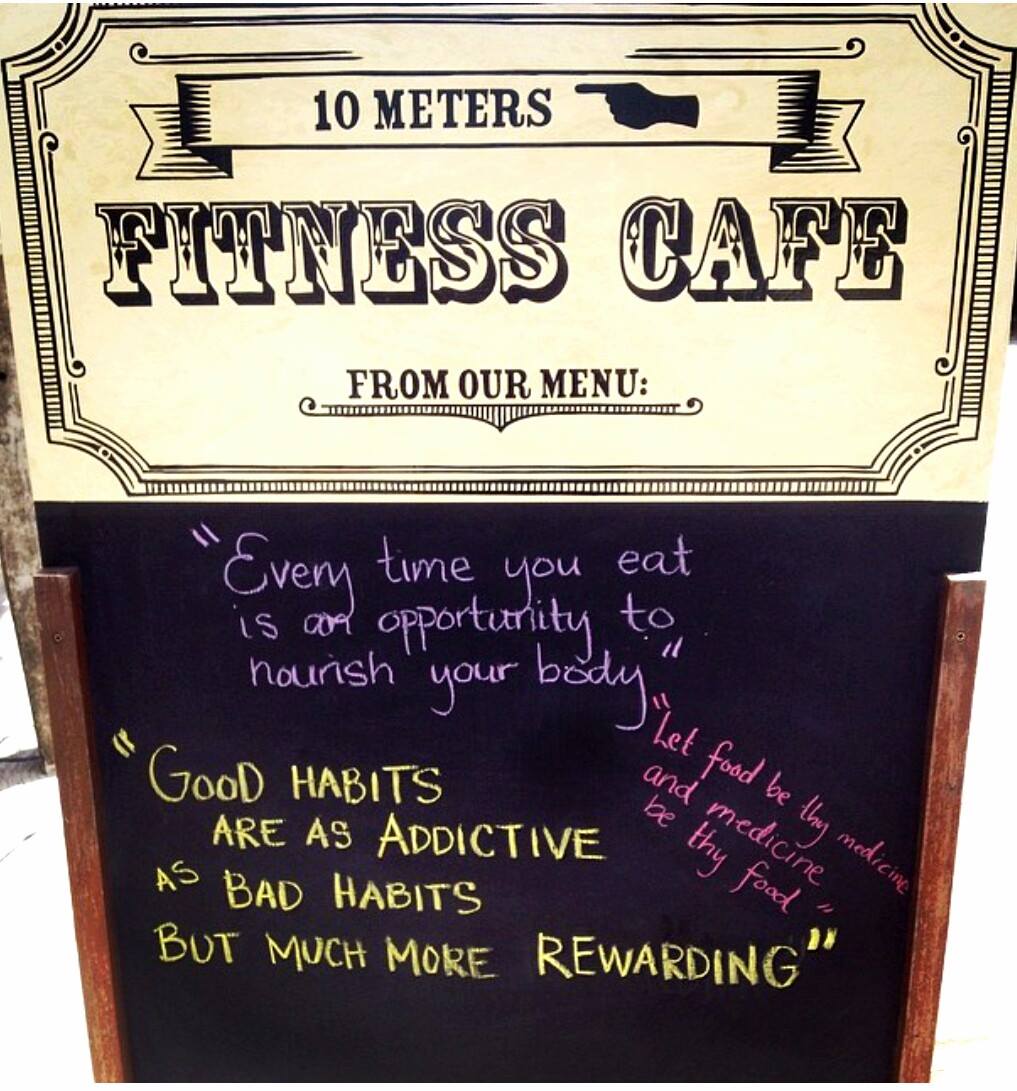 10 METERS
FITNESS CAFE
FROM OUR MENU:
"Every time you eat
is an opportunity to
nourish your body"
"Let food be thy medicine
and medicine
be thy food"
"GOOD HABITS
ARE AS ADDICTIVE
AS BAD HABITS
BUT MUCH MORE REWARDING"